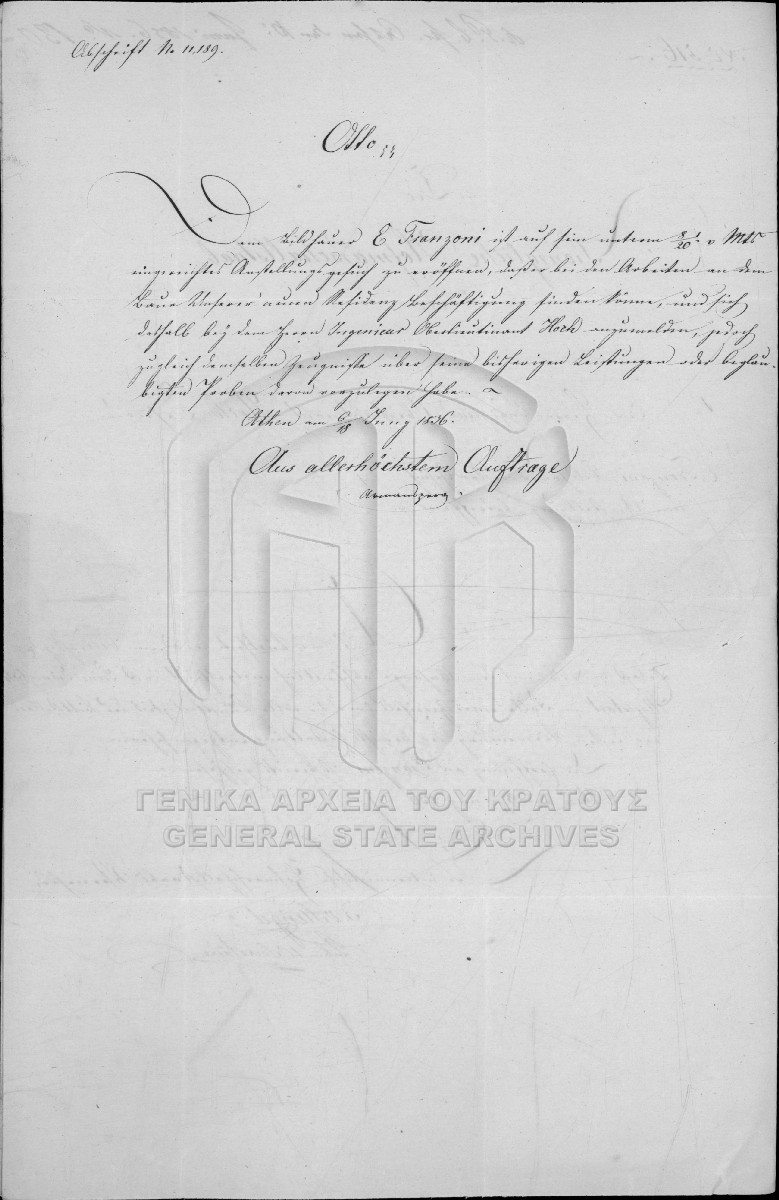 Abschrift No 11,189.
Otto
Dem Bildhauer E Franzoni ist auf sein unterm v Mts
eingereichtes Anstellungsgesuch zu eröffnen, daß er bei den Arbeiten an dem
Baue Unserer neuen Residenz Beschäftigung finden könne, und sich
deshalb bey dem Herrn Ingenieur Oberlieutinant Hoch anzumelden, jedoch
zugleich demselben Zeugnisse über seine bisherigen Leistungen oder beglau-
bigten Proben davon vorzulegen habe.
Athen am 6/18 Juny 1836.
Aus allerhöchstem Auftrage
Armansperg
ΓΕΝΙΚΑ ΑΡΧΕΙΑ ΤΟΥ ΚΡΑΤΟΥΣ
GENERAL STATE ARCHIVES